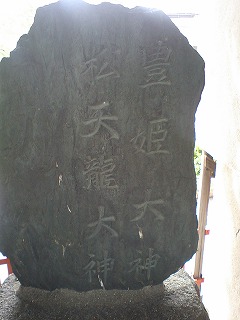 豊姫大神
松天龍大神